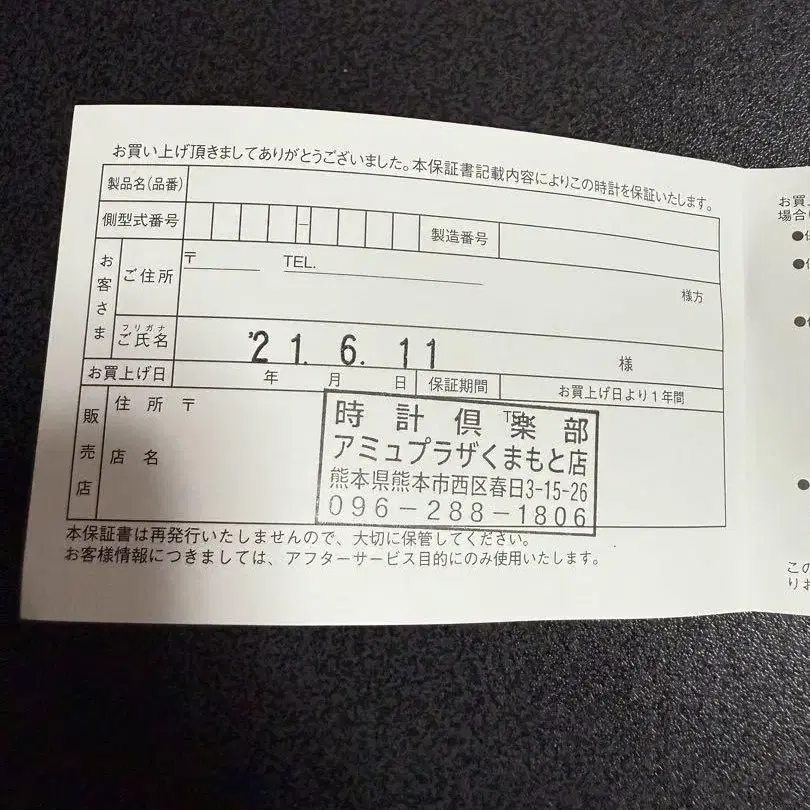 お買い上げ頂きましてありがとうございました。本保証書記載内容によりこの時計を保証いたします。
製品名(品番)
側型式番号 - 製造番号
お客さま
ご住所 〒 TEL.
様方
フリガナ
ご氏名 様
'21. 6. 11
お買上げ日 年 月 日 保証期間 お買上げ日より1年間
販売店
住所 〒
店名
時計倶楽部
アミュプラザくまもと店
熊本県熊本市西区春日3-15-26
096-288-1806
本保証書は再発行いたしませんので、大切に保管してください。
お客様情報につきましては、アフターサービス目的にのみ使用いたします。
お買上
場合
この
りお